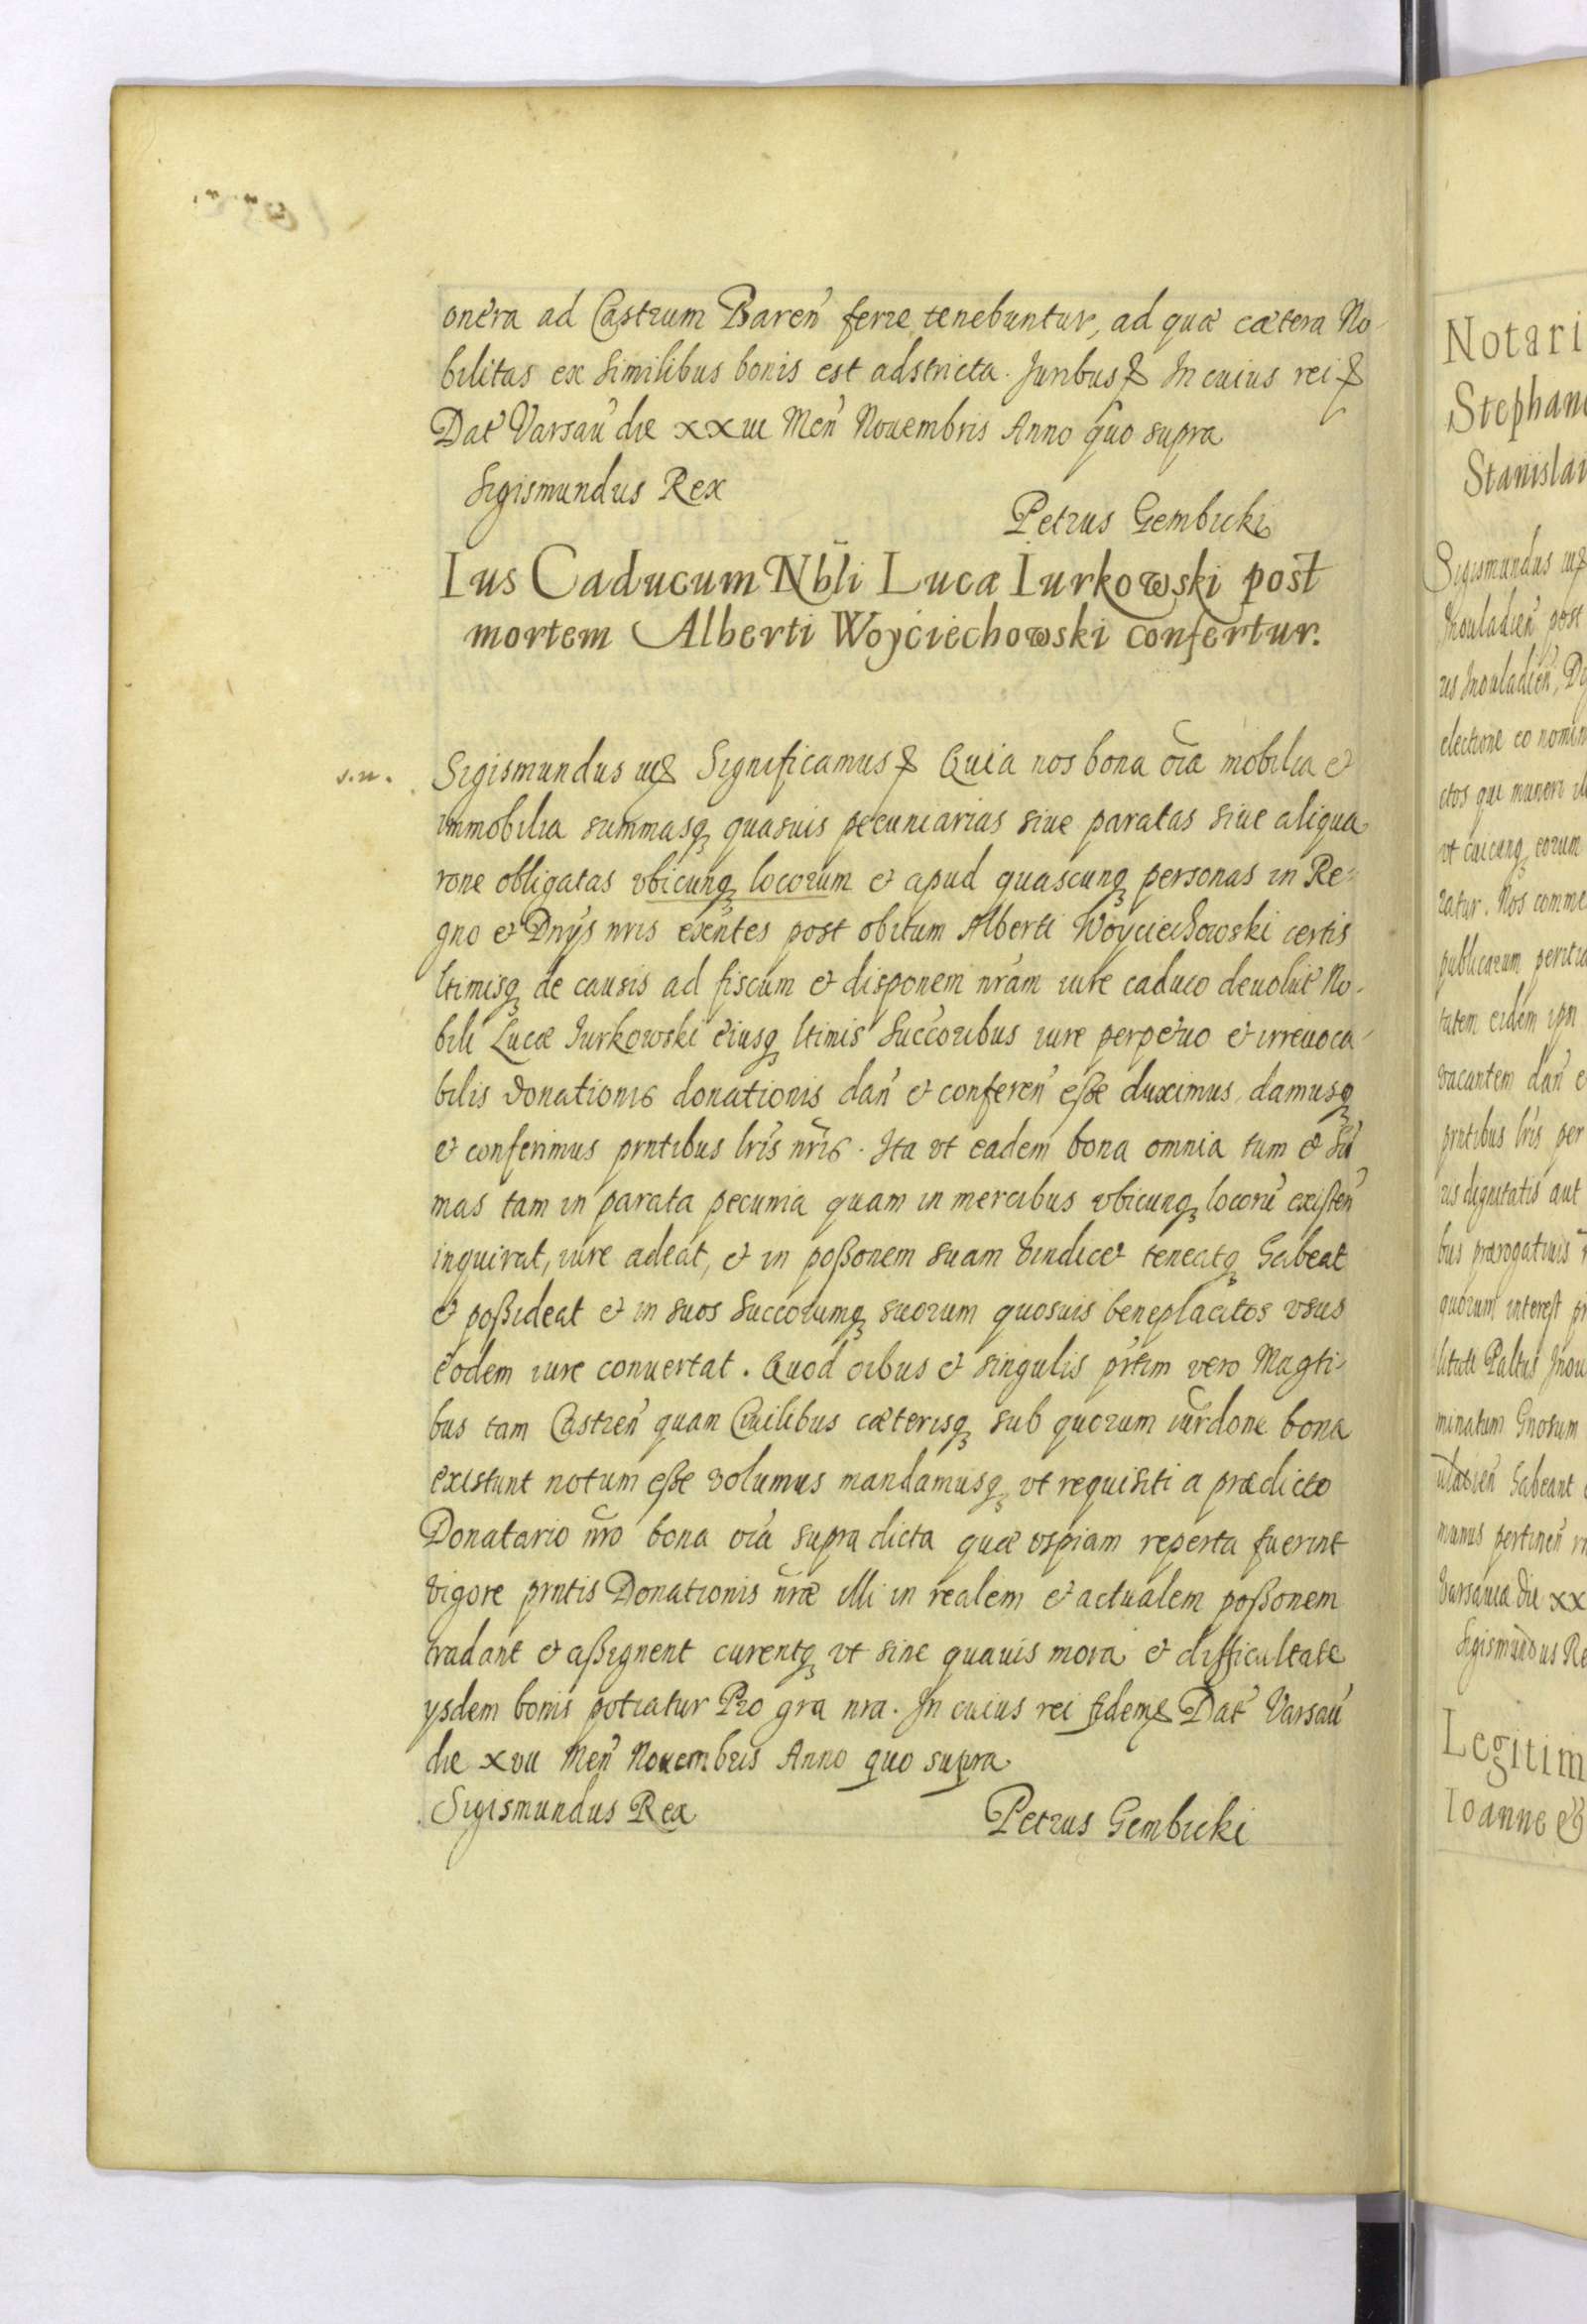 onera ad Castrum Baren̄ ferre tenebuntur, ad quæ cætera No-
bilitas ex similibus bonis est adstricta. Juribus etc In cuius rei etc
Dat̄ Varsau̅ die xxiii Men̄ Nouembris Anno quo supra
Sigismundus Rex
Petrus Gembicki
Ius Caducum Nb̄li Lucæ Iurkowski post
mortem Alberti Woyciechowski confertur.
s.n. Sigismundus iii etc Significamus etc Quia nos bona oīa mobilia et
immobilia summasq́ quasuis pecuniarias siue paratas siue aliqua
rōne obligatas vbicunq́ locorum et apud quascunq́ personas in Re-
gno et Dnȳs nr̄is exēntes post obitum Alberti Woyciechowski certis
ltimisq́ de causis ad fiscum et disponem nr̄am iure caduco deuolut̄ No-
bili Lucæ Iurkowski eiusq́ ltimis Succoribus iure perpetuo et irreuoca-
bilis donationis donationis dan̄ et conferen̄ eße duximus, damusq́
et conferimus prntibus lr̄is nr̄is. Ita vt eadem bona omnia tum et Su̅
mas tam in parata pecunia quam in mercibus vbicunq́ locoru̅ existen̄
inquirat, iure adeat, et in poßonem suam vindicet teneatq́ habeat
et poßideat et in suos Succorumq́ suorum quosuis beneplacitos vsus
eodem iure conuertat. Quod oībus et singulis pr̄tim vero Magti-
bus tam Castren̄ quam Ciuilibus cæterisq́ sub quorum iur̄done bona
existunt notum eße volumus mandamusq́ vt requisiti a prædicto
Donatario nr̄o bona oīa supra dicta quæ vspiam reperta fuerint
vigore prntis Donationis nr̄æ illi in realem et actualem poßonem
tradant et aßignent curentq́ vt sine quauis mora et difficultate
ysdem bonis potiatur Pro gra nra. In cuius rei fidem etc Dat̄ Varsau̅
die xvii Men̄ Nouembris Anno quo supra
Sigismundus Rex
Petrus Gembicki
Notari
Stephan
Stanisla
Sigismundus iii etc
Inouladien̄ post
us Inouladien̄,
electione eo nomin
ctos qui muneri
vt cuicunq́ eorum
ratur. Nos comme
publicarum peritia
tatem eidem
vacantem dan̄ e
prntibus lr̄is per
ris dignitatis aut
bus prærogatiuis
quorum interest
litate Paltus Inou
minatum Gnosum
uladien̄ habeant
munus pertinen̄
Varsauia die xx
Sigismundus Re
Legitim
Ioanne et